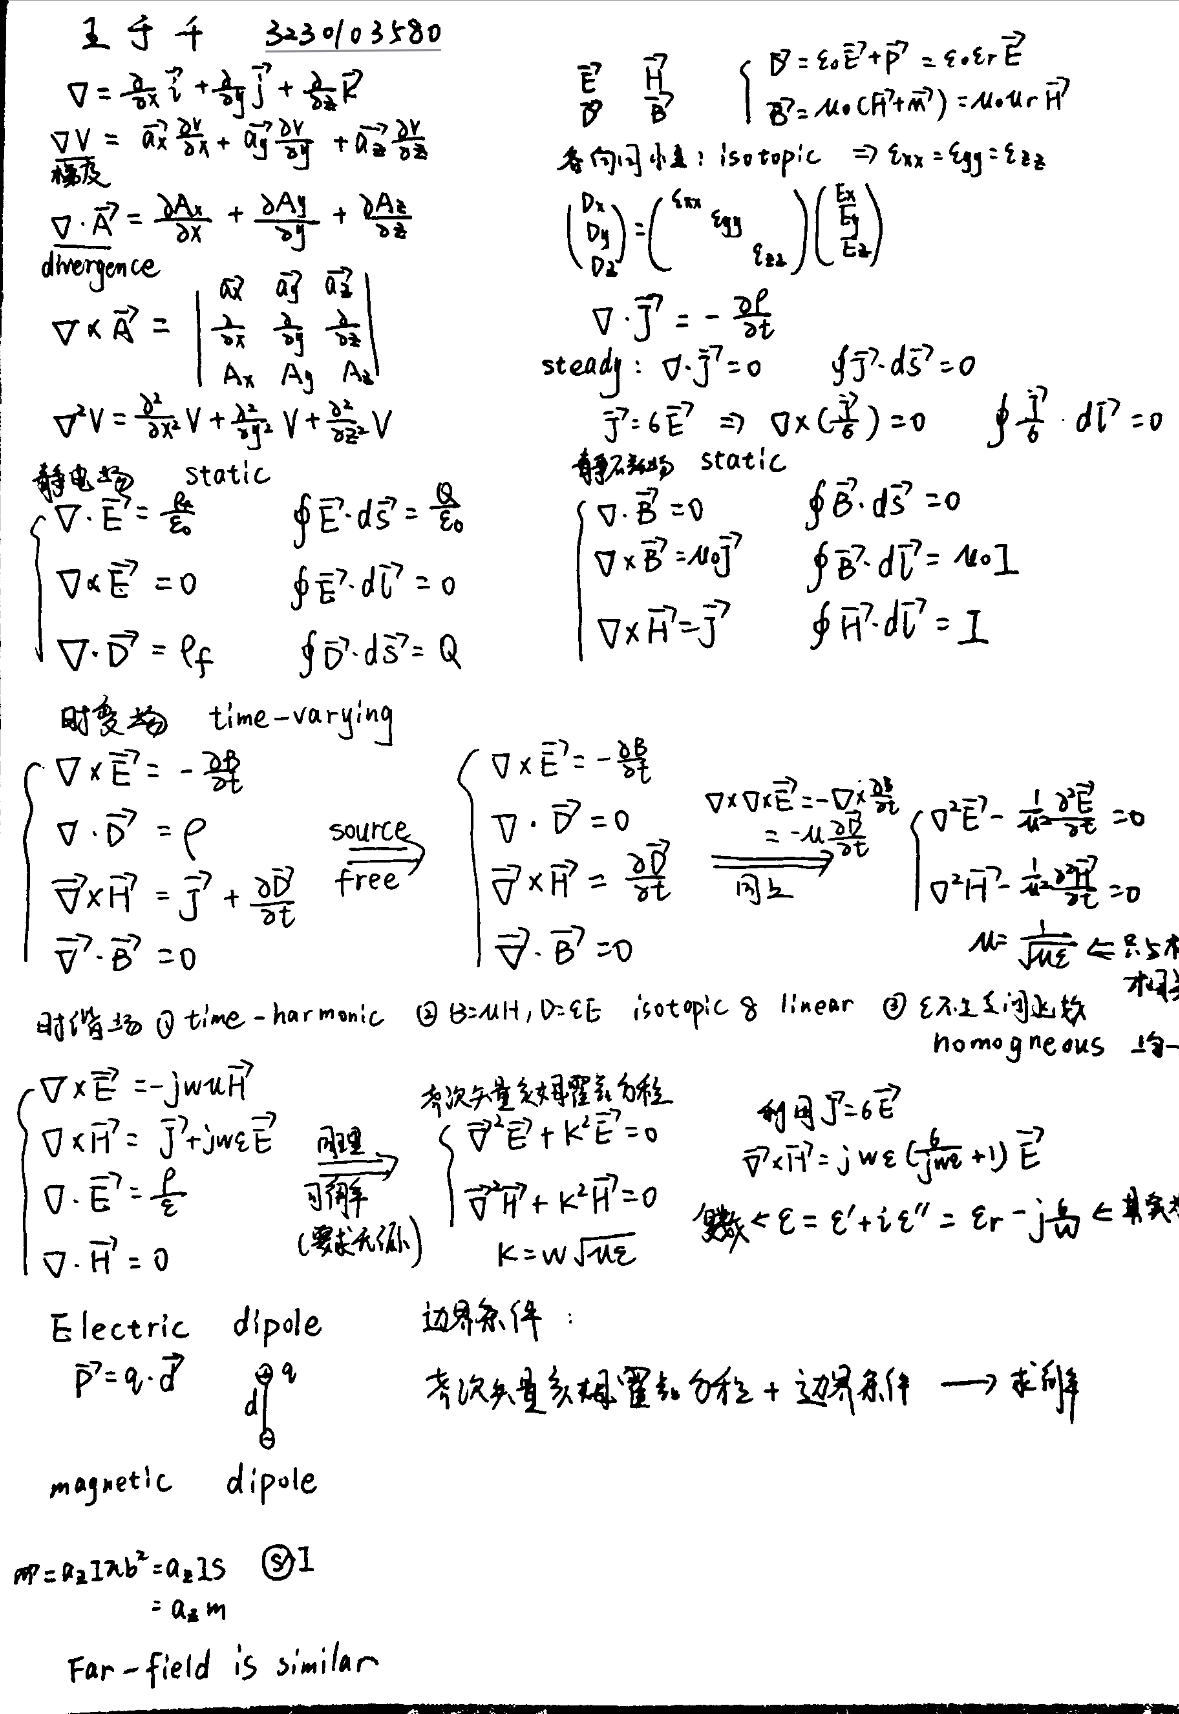 王于千 3230103580
∇ = ∂/∂x i⃗ + ∂/∂y j⃗ + ∂/∂z k⃗
∇V = a⃗x ∂V/∂x + a⃗y ∂V/∂y + a⃗z ∂V/∂z
梯度
∇·A⃗ = ∂Ax/∂x + ∂Ay/∂y + ∂Az/∂z
divergence
∇×A⃗ = | a⃗x a⃗y a⃗z |
| ∂/∂x ∂/∂y ∂/∂z |
| Ax Ay Az |
∇²V = ∂²/∂x² V + ∂²/∂y² V + ∂²/∂z² V
E⃗ H⃗ { D⃗ = ε₀E⃗ + P⃗ = ε₀εrE⃗
D⃗ B⃗ B⃗ = μ₀(H⃗ + m⃗) = μ₀μrH⃗
各向同性: isotopic ⇒ εxx = εyy = εzz
(Dx Dy Dz) = (εxx εyy εzz)(Ex Ey Ez)
∇·J⃗ = -∂ρ/∂t
steady: ∇·J⃗ = 0 ∮J⃗·ds⃗ = 0
J⃗ = 6E⃗ ⇒ ∇×(J⃗/6) = 0 ∮J⃗/6 · dl⃗ = 0
静电场 static
∇·E⃗ = ρ/ε₀ ∮E⃗·ds⃗ = Q/ε₀
∇×E⃗ = 0 ∮E⃗·dl⃗ = 0
∇·D⃗ = ρf ∮D⃗·ds⃗ = Q
静磁场 static
∇·B⃗ = 0 ∮B⃗·ds⃗ = 0
∇×B⃗ = μ₀J⃗ ∮B⃗·dl⃗ = μ₀I
∇×H⃗ = J⃗ ∮H⃗·dl⃗ = I
时变场 time-varying
∇×E⃗ = -∂B⃗/∂t
∇·D⃗ = ρ
∇⃗×H⃗ = J⃗ + ∂D⃗/∂t
∇⃗·B⃗ = 0
source
free
∇×E⃗ = -∂B/∂t
∇·D⃗ = 0
∇⃗×H⃗ = ∂D⃗/∂t
∇⃗·B⃗ = 0
∇×∇×E⃗ = -∇×∂B/∂t
= -μ ∂D⃗/∂t
同上
∇²E⃗ - 1/u² ∂²E⃗/∂t = 0
∇²H⃗ - 1/u² ∂²H⃗/∂t = 0
u = 1/√με ⇐ 只与材
相关
时谐场 ① time-harmonic ② B=μH, D=εE isotopic & linear ③ ε不是空间函数
homogneous 均一
∇×E⃗ = -jwuH⃗
∇×H⃗ = J⃗ + jwεE⃗
∇·E⃗ = ρ/ε
∇·H⃗ = 0
同理
可得解
(要求无源)
齐次矢量亥姆霍兹方程
∇⃗²E⃗ + K²E⃗ = 0
∇⃗²H⃗ + K²H⃗ = 0
K = w√με
利用J⃗ = 6E⃗
∇⃗×H⃗ = jwε(6/jwε + 1)E⃗
复数 ← ε = ε' + iε'' = εr - j6/w ←
Electric dipole
P⃗ = q·d⃗ + q
d
−
magnetic dipole
m = azIπb² = azIS Ⓢ I
= azm
Far-field is similar
边界条件:
齐次矢量亥姆霍兹方程 + 边界条件 → 求解